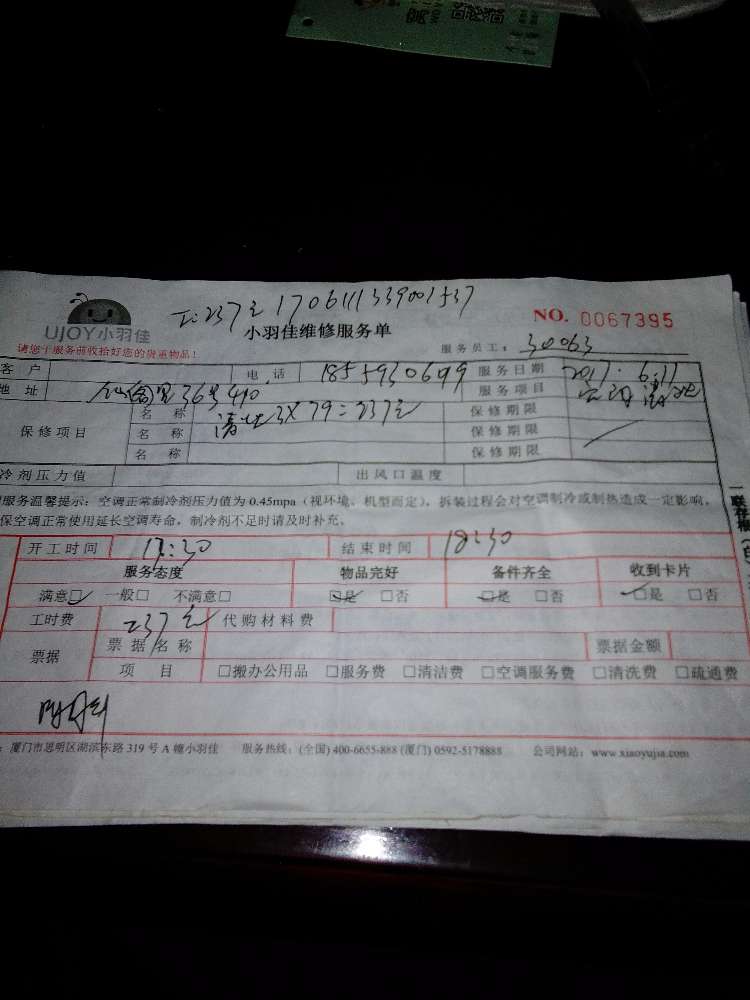 工:237元 170611339001537
UJOY小羽佳
小羽佳维修服务单
NO. 0067395
请您于服务前收拾好您的贵重物品!
服务员工: 30063
客户 电话 18559306499 服务日期 2017.6.11
地址 仙岳里36号410 服务项目 空调清洗
保修项目 名称 清洗3X79=237元 保修期限
名称 保修期限
名称 保修期限
冷剂压力值 出风口温度
服务温馨提示:空调正常制冷剂压力值为0.45mpa(视环境、机型而定),拆装过程会对空调制冷或制热造成一定影响,
保空调正常使用延长空调寿命,制冷剂不足时请及时补充。
开工时间 17:30 结束时间 18:30
服务态度 物品完好 备件齐全 收到卡片
满意□ 一般□ 不满意□ □是 □否 □是 □否 □是 □否
工时费 237元 代购材料费
票据 票据名称 票据金额
项目 □搬办公用品 □服务费 □清洁费 □空调服务费 □清洗费 □疏通费
:厦门市思明区湖滨东路319号A幢小羽佳 服务热线:(全国)400-6655-888(厦门)0592-5178888 公司网站:www.xiaoyujia.com